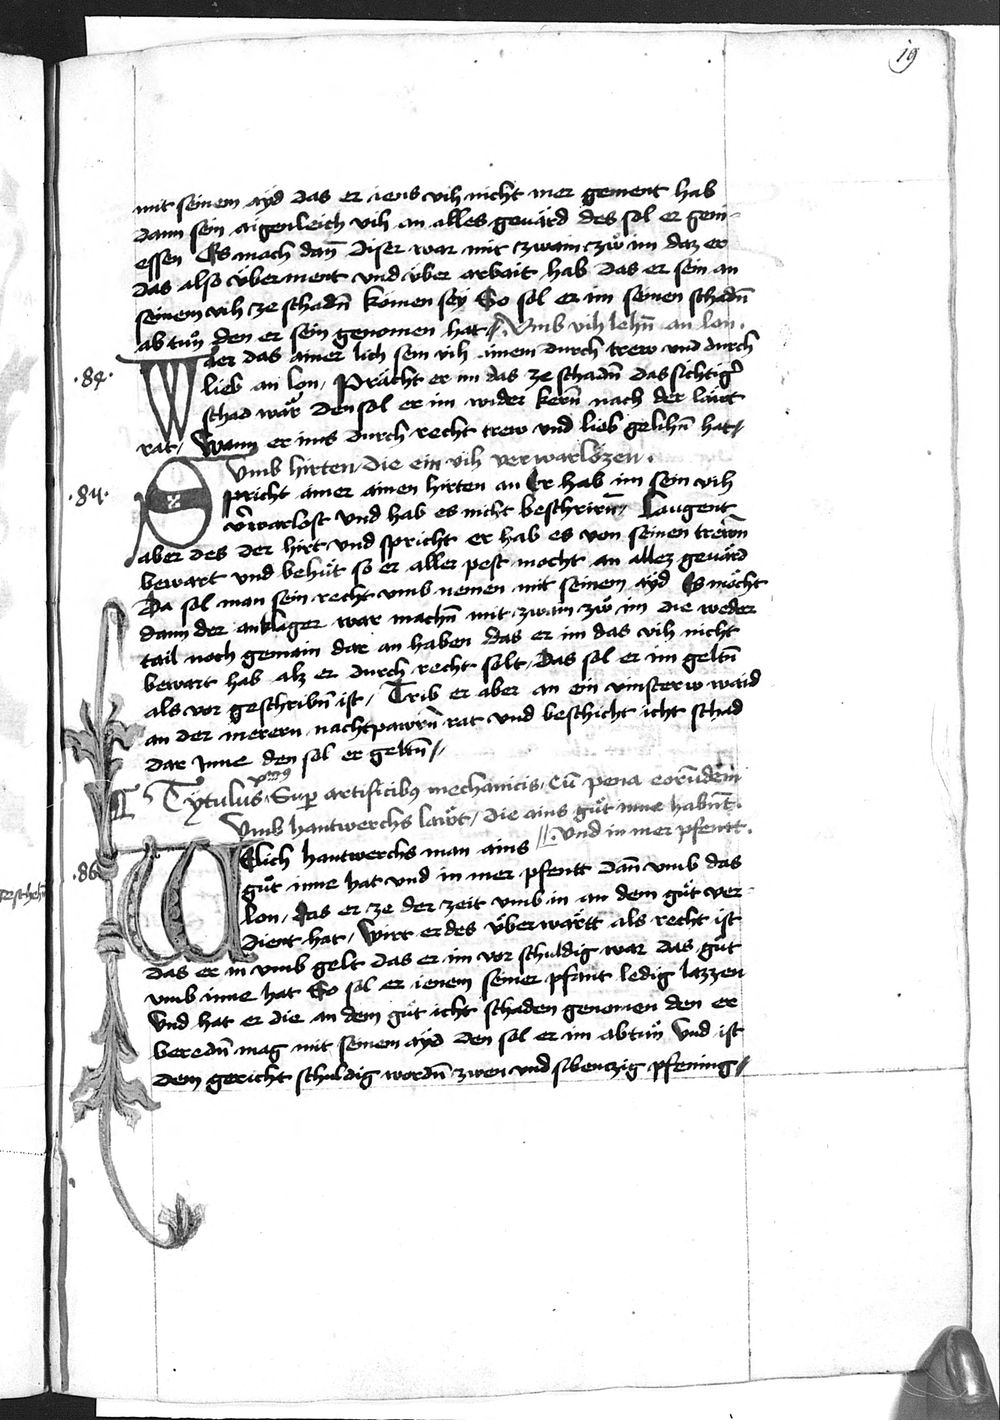 19
mit seinem ayd das er iens vih nicht mer gement hab
dann sein aigenleich vih an alles geuärd des sol er geni-
essen Es mach dan̄ diser war mit czwain czẘ im daz er
das also überment vnd über arbait hab das er sein an
seinem vih cze schadn̄ komen sey So sol er im seinen schadn̄
ab tůn den er sein genomen hat // Vmb vih lehn̄ an lon .
.84. Wer das ainer lich sein vih ainem durch trew vnd durch
lieb an lon / Prächt er im das ze schadn̄ das sichtigr̄
schad wär den sol er im wider kern̄ nach der läwt
rat / Wann er ims durch recht trew vnd lieb gelihn̄ hat /
Vmb hirten / die ein vih verwarlözen .
.85. Spricht ainer ainen hirten an Er hab im sein vih
v̄warlost vnd hab es nicht beschrirn̄ / Laugent
aber des der hirt vnd spricht er hab es von seinen trewn̄
bewart vnd behüt so er aller pest mocht an allez geuärd
Da sol man sein recht vmb nemen mit seinem ayd Es möcht
dann der anklager war machn̄ mit zwain zẘ im die weder
tail noch gemain dar an haben das er im das vih nicht
bewart hab alz er durch recht solt / Das sol er im geltn̄
als vor geschribn̄ ist / Trib er aber an ein vinsterw waid
an der merern nachtpawrn̄ rat vnd beschicht icht schad
dar Inne den sol er geltn̄ //
Tytulus Sup̄ artificibus mechanicis Cū pena eorūdem
Vmb hantwerchs läwt / die ains gůt inne habnt .
vnd in mer pfentt .
.86. Welich hantwerchs man ains
gůt inne hat vnd in mer pfentt dan̄ vmb das
lon / das er ze der zeit vmb in an dem gůt ver-
dient hat / Wirt er des überwärtt als recht ist
das er in vmb gelt das er im vor schuldig war das gůt
vmb inne hat So sol er ienem seiner pfant ledig lazzen
Vnd hat er die an dem gůt icht schaden genomen den er
beredn̄ mag mit seinem ayd den sol er im abtůn Vnd ist
dem gericht schuldig wordn̄ zwen vnd sibenczig pfening //